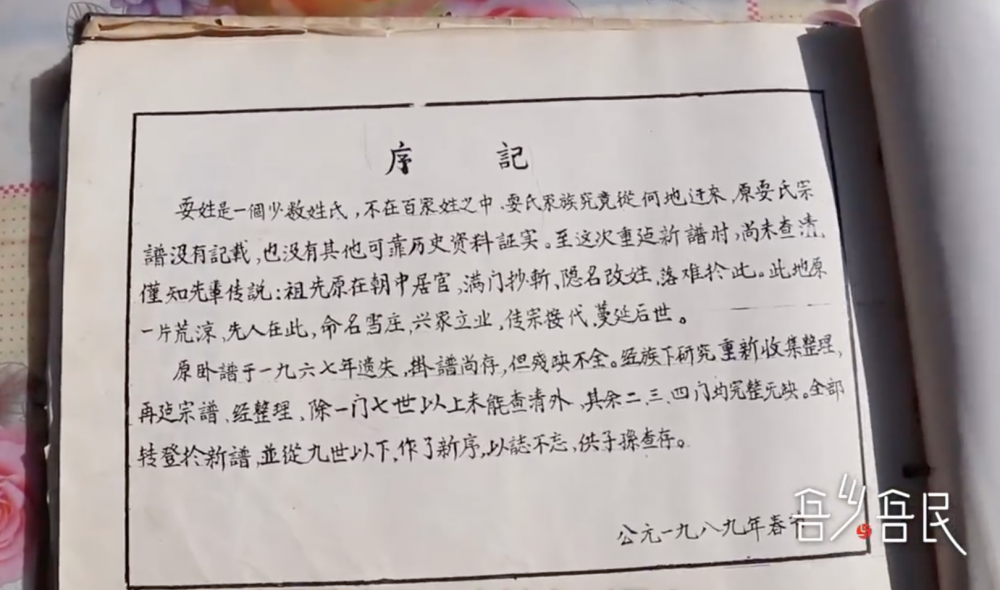 序 記
耍姓是一個少数姓氏,不在百家姓之中,耍氏家族究竟從何地迁来,原耍氏宗
譜没有記載,也没有其他可靠历史资料証实。至这次重建新譜时,尚未查清,
僅知先輩传説:祖先原在朝中居官,满门抄斬、隐名改姓,落难於此。此地原
一片荒涼,先人在此,命名雪庄,兴家立业,传宗接代,蔓延后世。
原卧譜于一九六七年遗失,掛譜尚存,但残缺不全。经族下研究重新收集整理,
再建宗譜、经整理、除一门七世以上未能查清外,其余二、三、四门均完整无缺。全部
转登於新譜,並從九世以下,作了新序,以誌不忘,供子孫查存。
公元一九八九年春
吾乡吾民